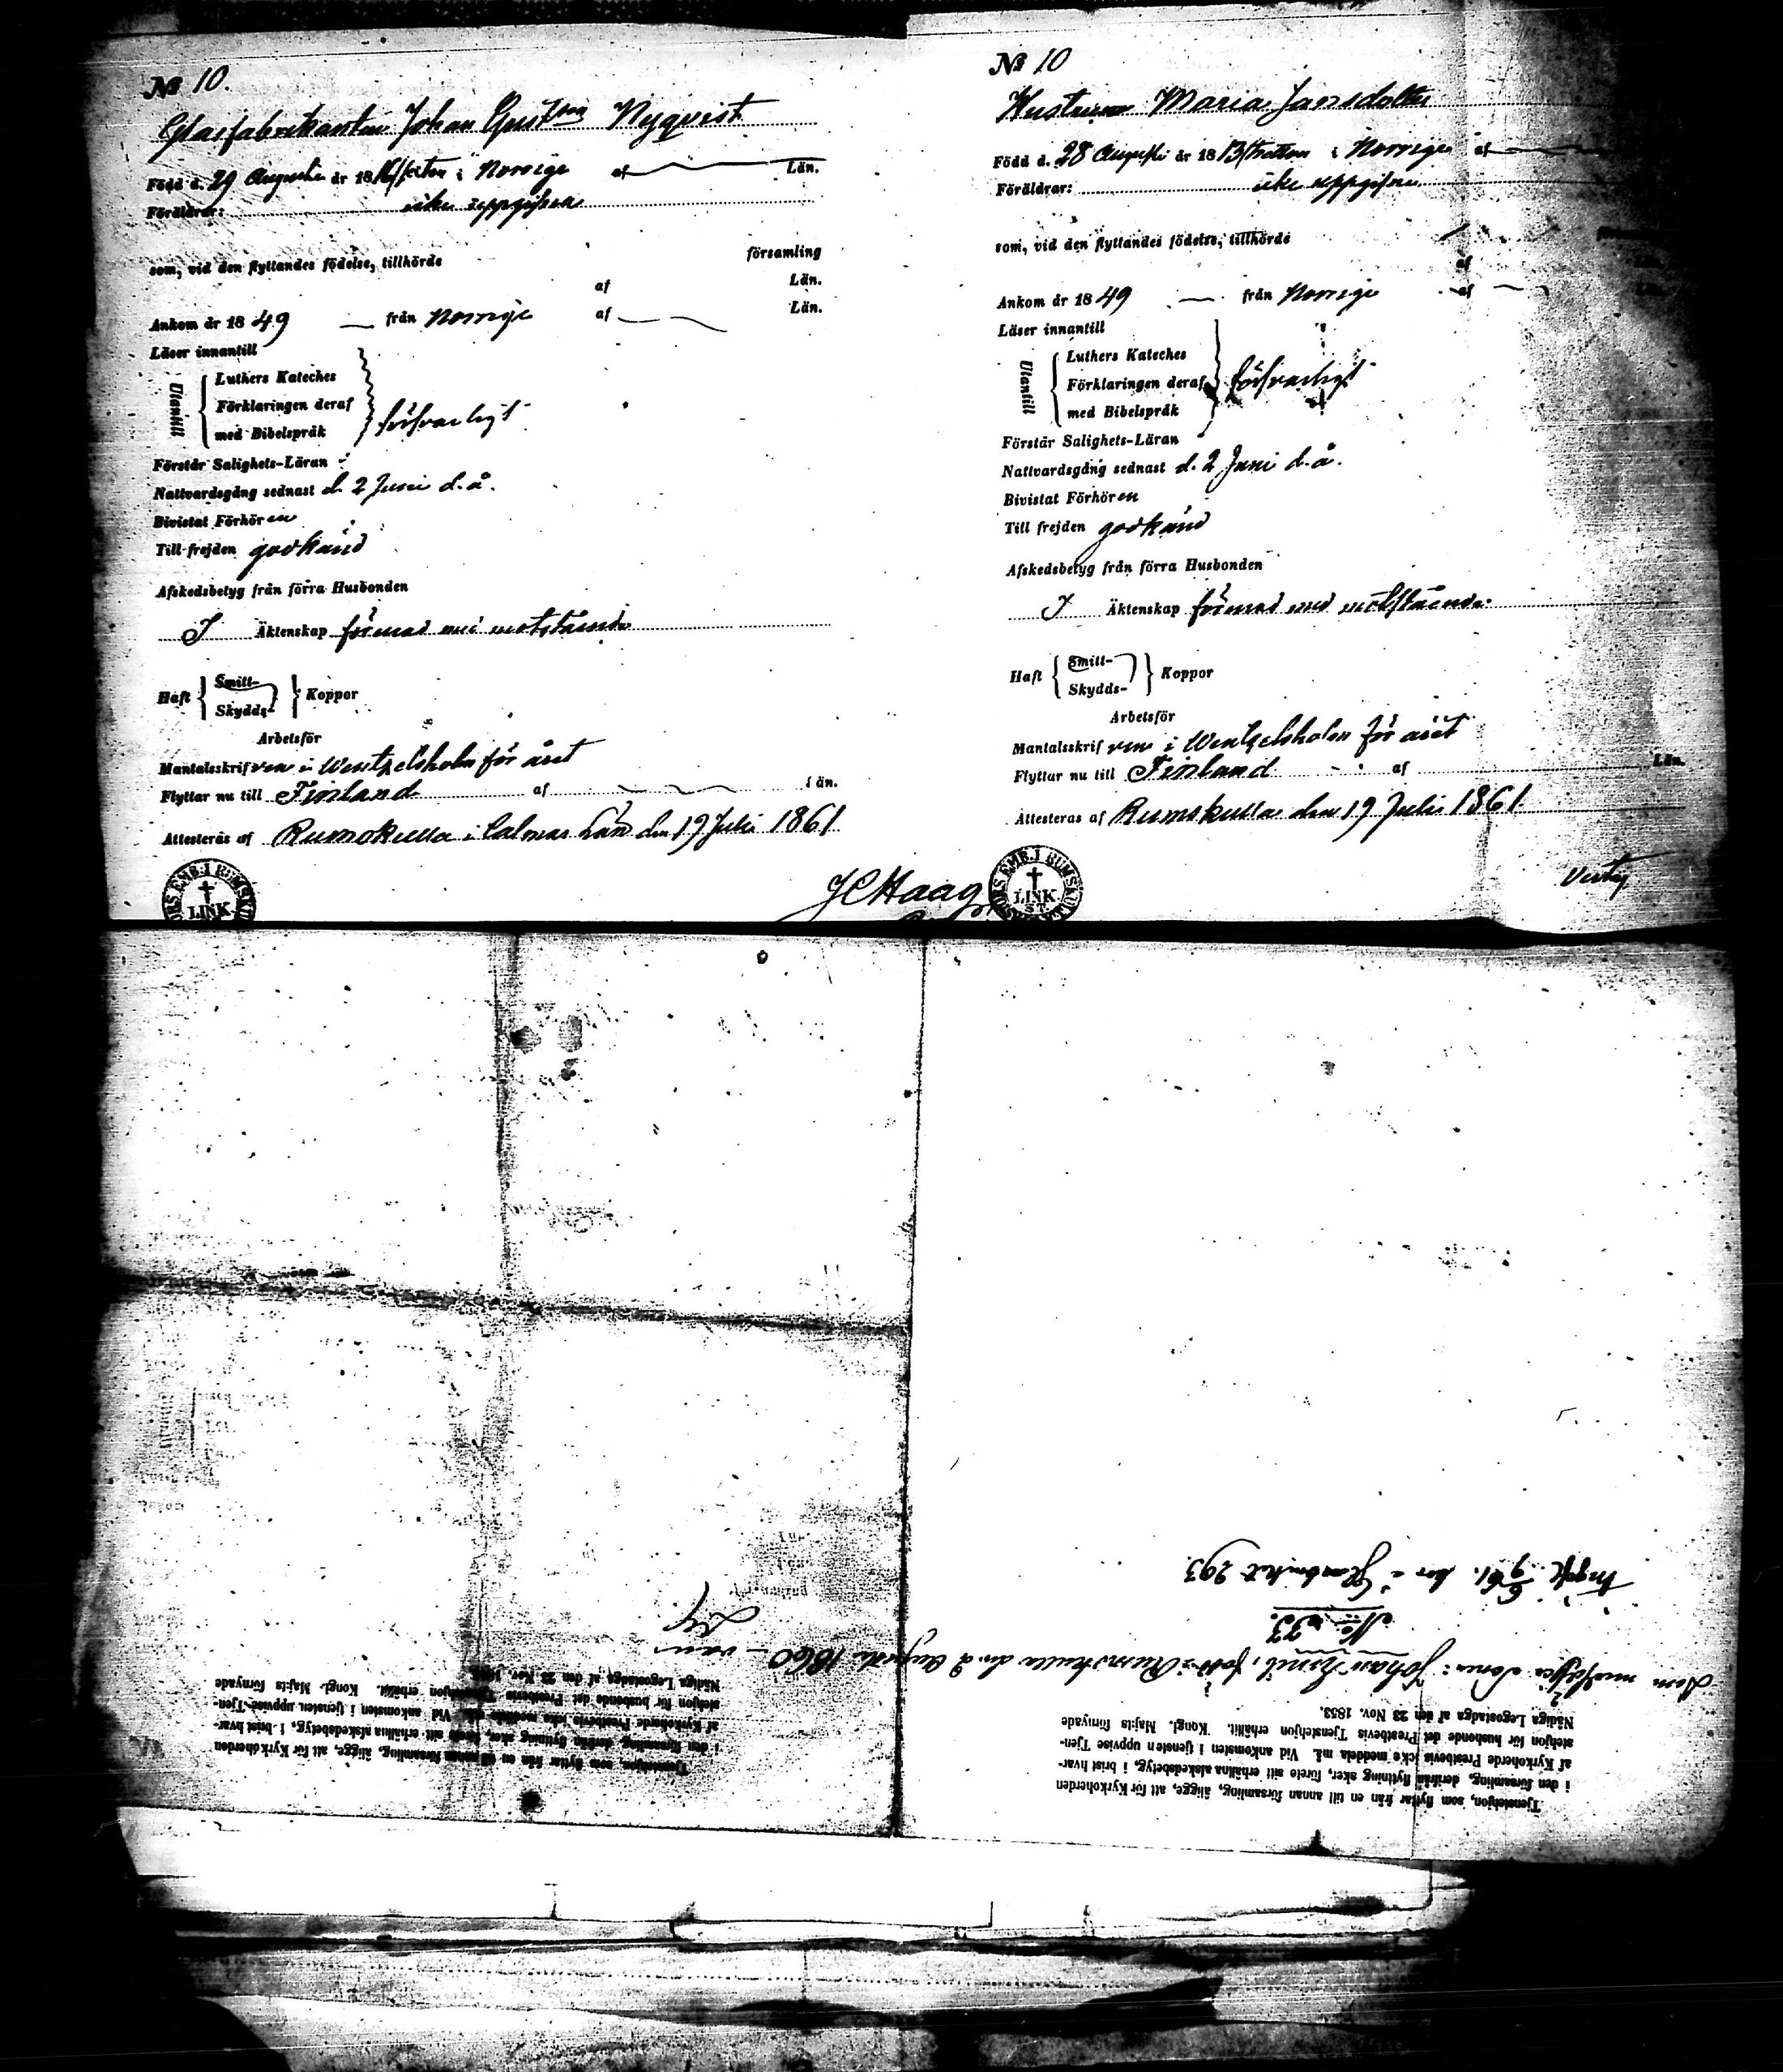 № 10.
Glasfabrikanten Johan Gust Nyqvist
Född d. 29 Augusti år 18 i Norrige af Län.
Föräldrar: icke uppgifna
som, vid den flyttandes födelse, tillhörde församling
af Län.
Ankom år 1849 från Norrige af Län.
Läser innantill
Utantill
Luthers Kateches
Förklaringen deraf
med Bibelspråk
försvarligt
Förstår Salighets-Läran
Nattvardsgång sednast d. 2 Juni d. å.
Bivistat Förhören
Till frejden godkänd
Afskedsbetyg från förra Husbonden
I Äktenskap förenad med motstående
Haft Smitt- Skydds- Koppor
Arbetsför
Mantalsskrifven i Wentzelsholm för året
Flyttar nu till Finland af Län.
Attesteras af Rumskulla i Calmar Län den 19 Juli 1861
J C Haag
№ 10
Hustrun Maria Jansdotter
Född d. 28 Augusti år 1813/tretton i Norrige af
Föräldrar: icke uppgifna
som, vid den flyttandes födelse, tillhörde
af
Ankom år 1849 från Norrige af
Läser innantill
Utantill
Luthers Kateches
Förklaringen deraf
med Bibelspråk
försvarligt
Förstår Salighets-Läran
Nattvardsgång sednast d. 2 Juni d. å.
Bivistat Förhören
Till frejden godkänd
Afskedsbetyg från förra Husbonden
I Äktenskap förenad med motstående
Haft Smitt- Skydds- Koppor
Arbetsför
Mantalsskrifven i Wentzelsholm för året
Flyttar nu till Finland af Län.
Attesteras af Rumskulla den 19 Juli 1861
LINK
ST.
Tjenstehjon, som flyttar från en till annan församling, åligge, att för Kyrkoherden
i den församling, derifrån flyttning sker, förete sitt erhållna afskedsbetyg, i brist hvar-
af Kyrkoherde Prestbevis icke meddela må. Vid ankomsten i tjensten uppvise Tjen-
stehjon för husbonde det Prestbevis Tjenstehjon erhållit. Kongl. Maj:ts förnyade
Nådiga Legostadga af den 23 Nov. 1853.
Som medföljer Sonen: Johan Emil, född i Rumskulla den 2 Augusti 1860
№ 33.
293
Tjenstehjon, som flyttar från en till annan församling, åligge, att för Kyrkoherden
i den församling, derifrån flyttning sker, förete sitt erhållna afskedsbetyg, i brist hvar-
af Kyrkoherde Prestbevis icke meddela må. Vid ankomsten i tjensten uppvise Tjen-
stehjon för husbonde det Prestbevis Tjenstehjon erhållit. Kongl. Maj:ts förnyade
Nådiga Legostadga af den 23 Nov.